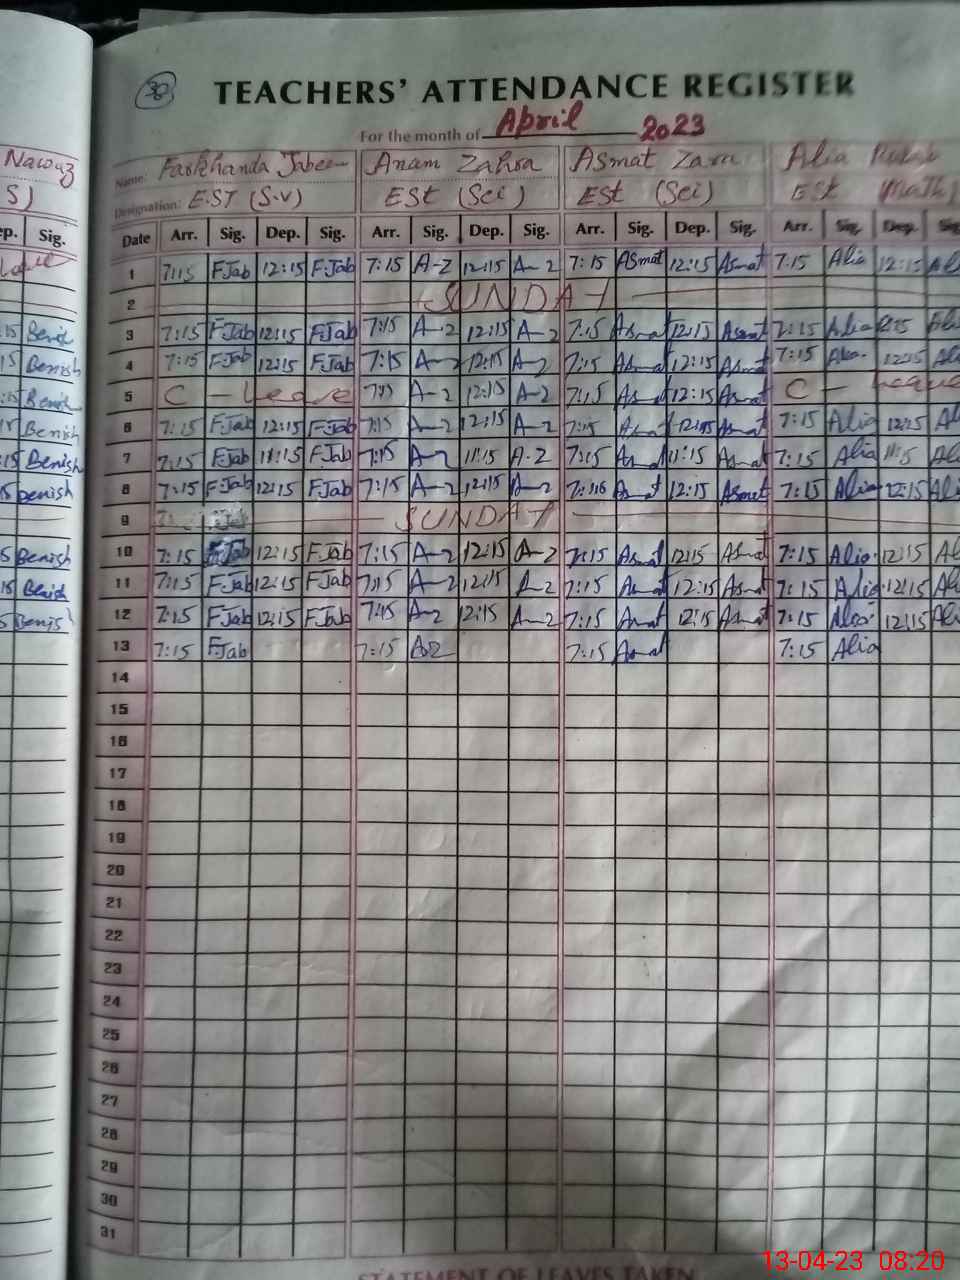 38
TEACHERS' ATTENDANCE REGISTER
For the month of April 2023
Nawaz
Name: Farkhanda Jabeen Anam Zahra Asmat Zara Alia
S)
Designation: EST (S.V) ESt (Sci) ESt (Sci) ESt (Math)
ep. Sig. Date Arr. Sig. Dep. Sig. Arr. Sig. Dep. Sig. Arr. Sig. Dep. Sig. Arr. Sig. Dep. Sig
Leave 1 7:15 F.Jab 12:15 F.Jab 7:15 A-Z 12:15 A-Z 7:15 Asmat 12:15 Asmat 7:15 Alia 12:15 Al
2 SUNDAY
:15 Benish 3 7:15 F.Jab 12:15 F.Jab 7:15 A-Z 12:15 A-Z 7:15 Asmat 12:15 Asmat 7:15 Alia 12:15 Ali
15 Benish 4 7:15 F.Jab 12:15 F.Jab 7:15 A-Z 12:15 A-Z 7:15 Asmat 12:15 Asmat 7:15 Alia 12:15 Ali
:15 Benish 5 C - Leave 7:15 A-Z 12:15 A-Z 7:15 Asmat 12:15 Asmat C - Leave
15 Benish 6 7:15 F.Jab 12:15 F.Jab 7:15 A-Z 12:15 A-Z 7:15 Asmat 12:15 Asmat 7:15 Alia 12:15 Al
:15 Benish 7 7:15 F.Jab 11:15 F.Jab 7:15 A-Z 11:15 A-Z 7:15 Asmat 11:15 Asmat 7:15 Alia 11:15 Ali
15 Benish 8 7:15 F.Jab 12:15 F.Jab 7:15 A-Z 12:15 A-Z Asmat 12:15 Asmat 7:15 Alia 12:15 Ali
9 SUNDAY
5 Benish 10 7:15 F.Jab 12:15 F.Jab 7:15 A-Z 12:15 A-Z 7:15 Asmat 12:15 Asmat 7:15 Alia 12:15 Al
15 Benish 11 7:15 F.Jab 12:15 F.Jab 7:15 A-Z 12:15 A-Z 7:15 Asmat 12:15 Asmat 7:15 Alia 12:15 Ali
5 Benish 12 7:15 F.Jab 12:15 F.Jab 7:15 A-Z 12:15 A-Z 7:15 Asmat 12:15 Asmat 7:15 Alia 12:15 Ali
13 7:15 F.Jab 7:15 AZ 7:15 Asmat 7:15 Alia
14
15
16
17
18
19
20
21
22
23
24
25
26
27
28
29
30
31
STATEMENT OF LEAVES TAKEN
13-04-23 08:20